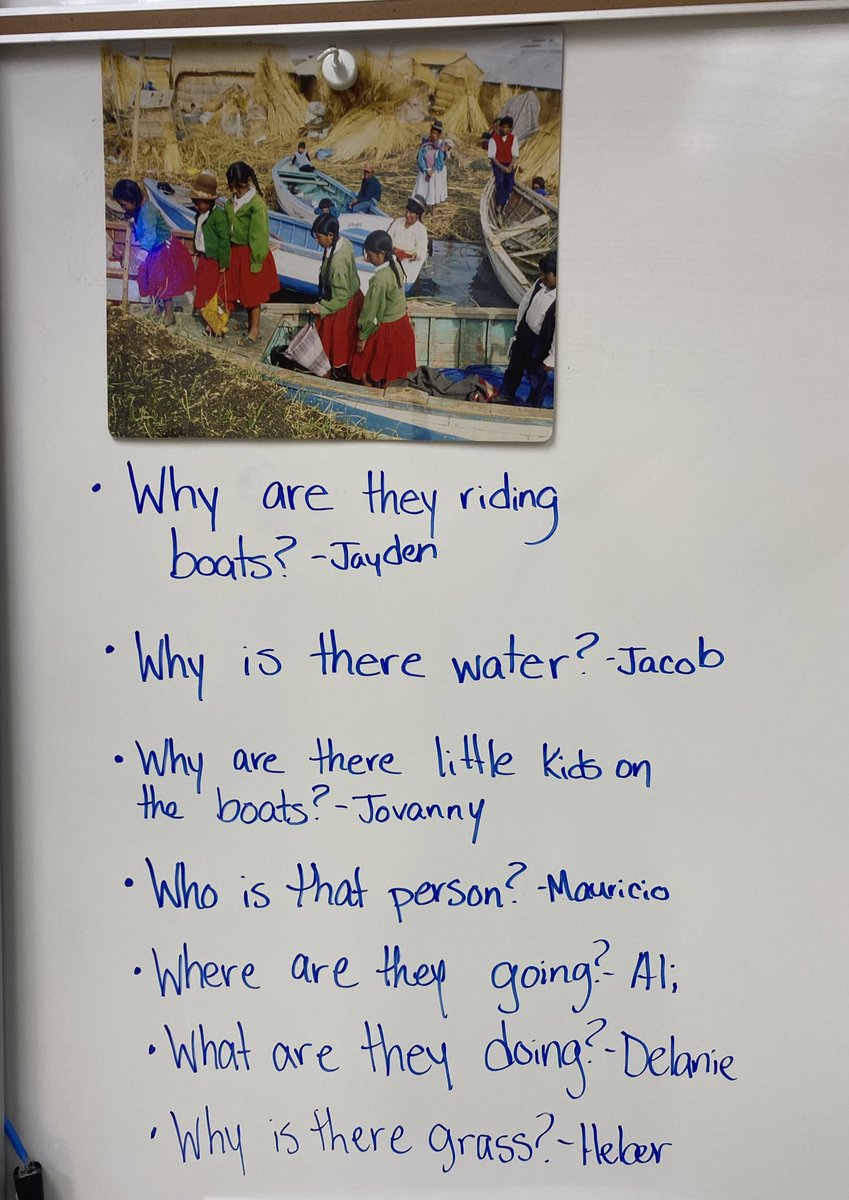 • Why are they riding
boats? -Jayden
• Why is there water? -Jacob
• Why are there little kids on
the boats? -Jovanny
• Who is that person? -Mauricio
• Where are they going? - Ali
• What are they doing? -Delanie
• Why is there grass? -Heber